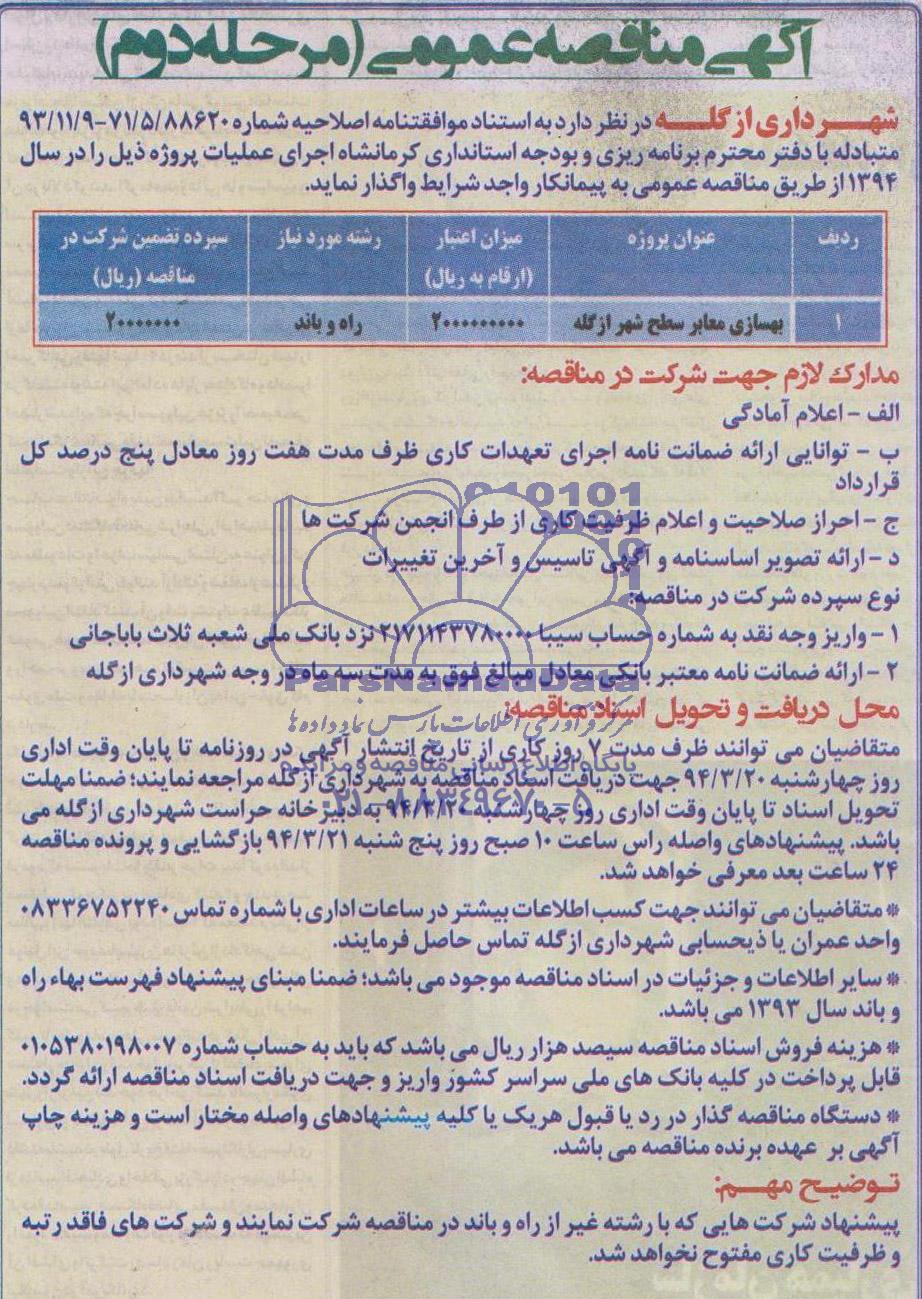 آگهی مناقصه عمومی (مرحله دوم)
شهرداری ازگله در نظر دارد به استناد موافقتنامه اصلاحیه شماره ۷۱/۵/۸۸۶۲۰-۹۳/۱۱/۹
متبادله با دفتر محترم برنامه ریزی و بودجه استانداری کرمانشاه اجرای عملیات پروژه ذیل را در سال
۱۳۹۴ از طریق مناقصه عمومی به پیمانکار واجد شرایط واگذار نماید.
ردیف عنوان پروژه میزان اعتبار (ارقام به ریال) رشته مورد نیاز سپرده تضمین شرکت در مناقصه (ریال)
۱ بهسازی معابر سطح شهر ازگله ۲۰۰۰۰۰۰۰۰۰ راه و باند ۲۰۰۰۰۰۰۰
مدارک لازم جهت شرکت در مناقصه:
الف - اعلام آمادگی
ب - توانایی ارائه ضمانت نامه اجرای تعهدات کاری ظرف مدت هفت روز معادل پنج درصد کل
قرارداد
ج - احراز صلاحیت و اعلام ظرفیت کاری از طرف انجمن شرکت ها
د - ارائه تصویر اساسنامه و آگهی تاسیس و آخرین تغییرات
نوع سپرده شرکت در مناقصه:
۱ - واریز وجه نقد به شماره حساب سیبا ۲۱۷۱۱۴۳۷۸۰۰۰۰ نزد بانک ملی شعبه ثلاث باباجانی
۲ - ارائه ضمانت نامه معتبر بانکی معادل مبالغ فوق به مدت سه ماه در وجه شهرداری ازگله
ParsNamadData
محل دریافت و تحویل اسناد مناقصه:
مرکز فرآوری اطلاعات پارس نماد داده ها
متقاضیان می توانند ظرف مدت ۷ روز کاری از تاریخ انتشار آگهی در روزنامه تا پایان وقت اداری
پایگاه اطلاع رسانی مناقصه و مزایده
روز چهارشنبه ۹۴/۳/۲۰ جهت دریافت اسناد مناقصه به شهرداری ازگله مراجعه نمایند؛ ضمنا مهلت
تحویل اسناد تا پایان وقت اداری روز چهارشنبه ۹۴/۳/۲۰ به دبیرخانه حراست شهرداری ازگله می
۰۲۱-۸۸۳۴۹۶۷۰-۵
باشد. پیشنهادهای واصله راس ساعت ۱۰ صبح روز پنج شنبه ۹۴/۳/۲۱ بازگشایی و پرونده مناقصه
۲۴ ساعت بعد معرفی خواهد شد.
* متقاضیان می توانند جهت کسب اطلاعات بیشتر در ساعات اداری با شماره تماس ۰۸۳۳۶۷۵۲۲۴۰
واحد عمران یا ذیحسابی شهرداری ازگله تماس حاصل فرمایند.
* سایر اطلاعات و جزئیات در اسناد مناقصه موجود می باشد؛ ضمنا مبنای پیشنهاد فهرست بهاء راه
و باند سال ۱۳۹۳ می باشد.
* هزینه فروش اسناد مناقصه سیصد هزار ریال می باشد که باید به حساب شماره ۰۱۰۵۳۸۰۱۹۸۰۰۷
قابل پرداخت در کلیه بانک های ملی سراسر کشور واریز و جهت دریافت اسناد مناقصه ارائه گردد.
* دستگاه مناقصه گذار در رد یا قبول هریک یا کلیه پیشنهادهای واصله مختار است و هزینه چاپ
آگهی بر عهده برنده مناقصه می باشد.
توضیح مهم:
پیشنهاد شرکت هایی که با رشته غیر از راه و باند در مناقصه شرکت نمایند و شرکت های فاقد رتبه
و ظرفیت کاری مفتوح نخواهد شد.